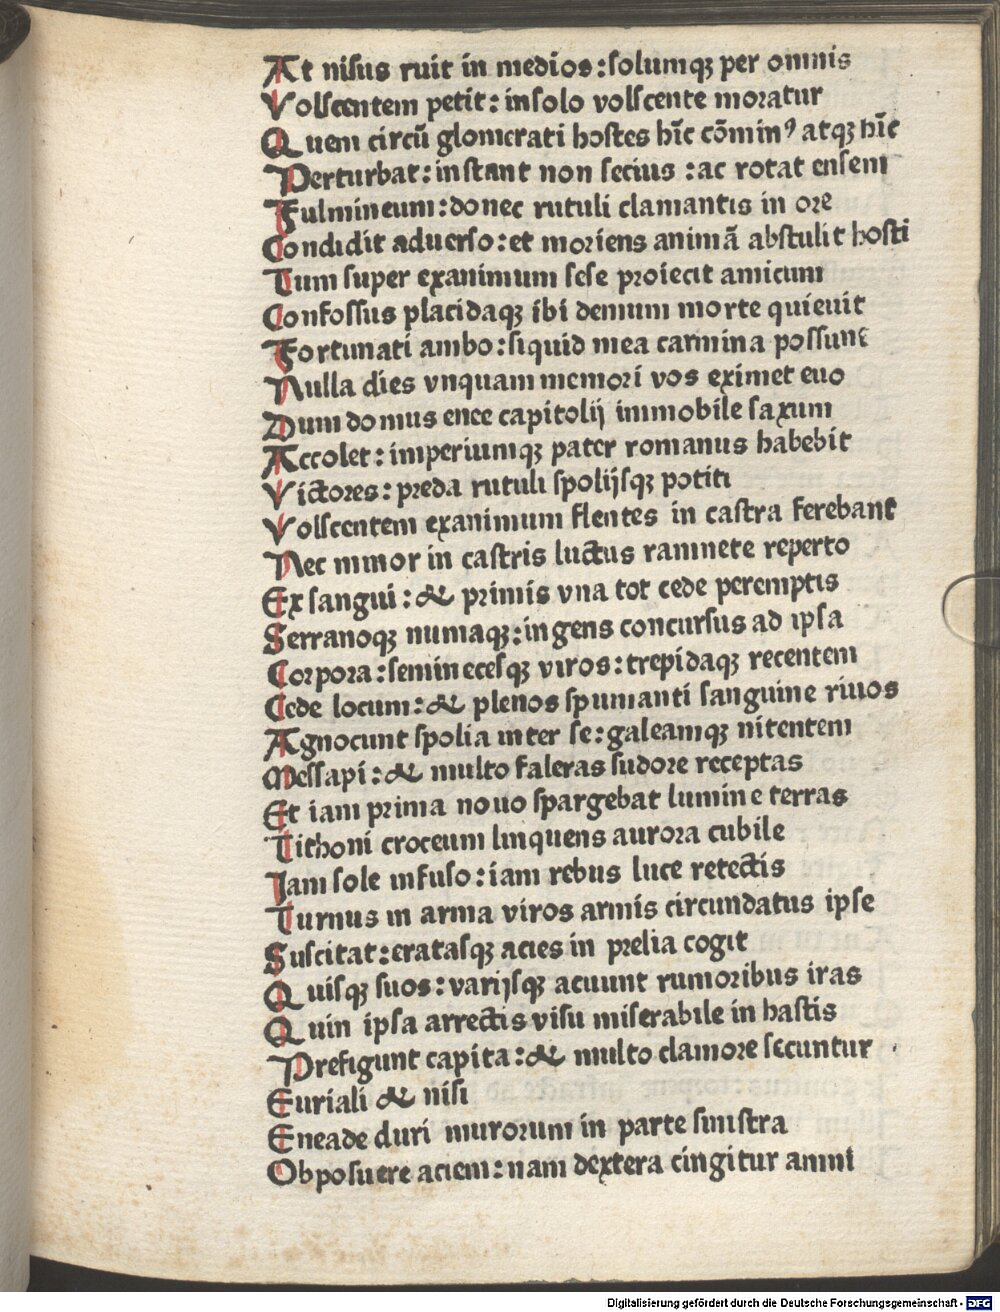 At nisus ruit in medios:solumqꝫ per omnis
Volscentem petit: insolo volscente moratur
Quem circū glomerati hostes hīc cōminꝰ atqꝫ hīc
Perturbat: instant non secius :ac rotat ensem
Fulmineum:donec rutuli clamantis in ore
Condidit aduerso:et moriens animā abstulit hosti
Tum super exanimum sese proiecit amicum
Confossus placidaqꝫ ibi demum morte quieuit
Fortunati ambo:siquid mea carmina possunt
Nulla dies vnquam memori vos eximet euo
Dum domus enee capitolij immobile saxum
Accolet: imperiumqꝫ pater romanus habebit
Victores: preda rutuli spolijsqꝫ potiti
Volscentem exanimum flentes in castra ferebant
Nec minor in castris luctus ramnete reperto
Exsangui: & primis vna tot cede peremptis
Serranoqꝫ numaqꝫ:ingens concursus ad ipsa
Corpora:seminecesqꝫ viros:trepidaqꝫ recentem
Cede locum:& plenos spumanti sanguine riuos
Agnocunt spolia inter se:galeamqꝫ nitentem
Messapi: & multo faleras sudore receptas
Et iam prima nouo spargebat lumine terras
Tithoni croceum linquens aurora cubile
Jam sole infuso:iam rebus luce retectis
Turnus in arma viros armis circundatus ipse
Suscitat:eratasqꝫ acies in prelia cogit
Quisqꝫ suos:varijsqꝫ acuunt rumoribus iras
Quin ipsa arrectis visu miserabile in hastis
Prefigunt capita:& multo clamore secuntur
Euriali & nisi
Eneade duri murorum in parte sinistra
Obposuere aciem:nam dextera cingitur amni
Digitalisierung gefördert durch die Deutsche Forschungsgemeinschaft - DFG